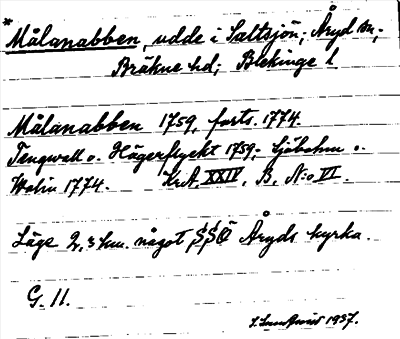 * Målanabben, udde i Saltsjön; Åryd sn,
Bräkne hd; Blekinge l.
Målanabben 1759, forts. 1774.
Tengwall o. Hägerflyckt 1759; Sjöbohm o.
Wolin 1774. Kr.A. XXIV, B, N:o VI.
Läge 2,3 km. något SSÖ Åryds kyrka.
G. 11.
1937.